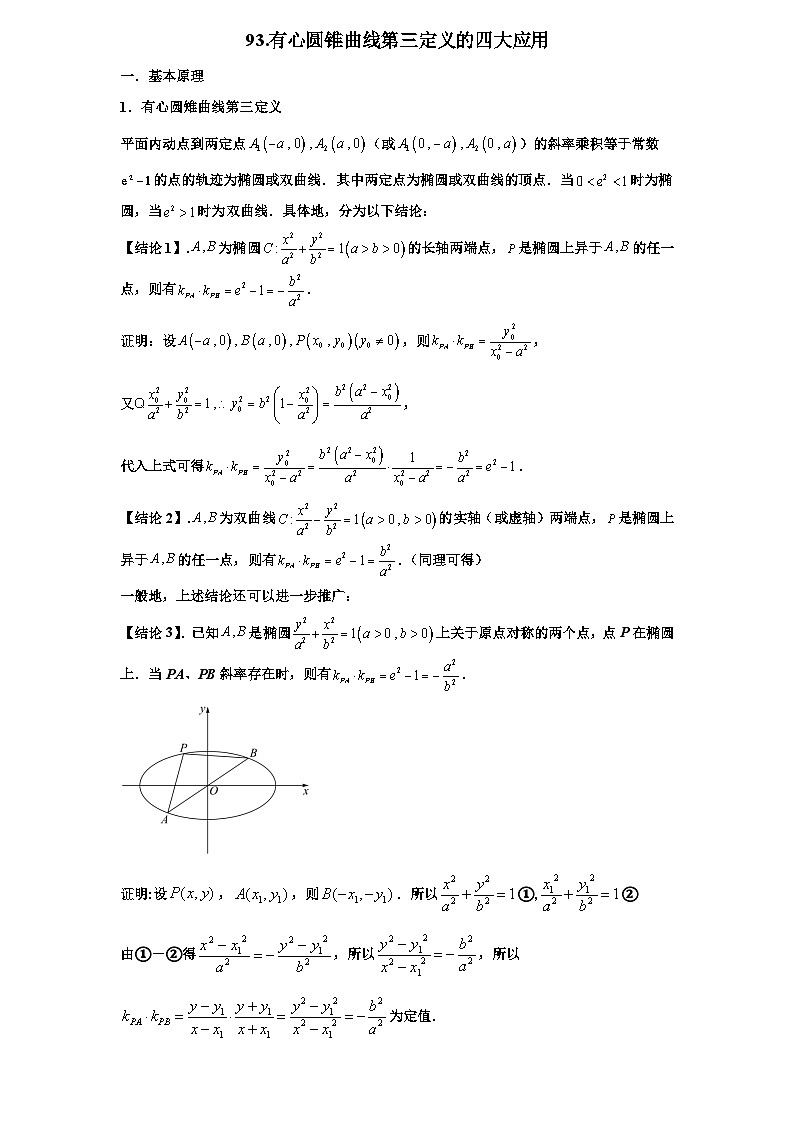 93.有心圆锥曲线第三定义的四大应用
一．基本原理
1．有心圆雉曲线第三定义
平面内动点到两定点 A₁(−a,0), A₂(a,0)（或 A₁(0,−a), A₂(0,a)）的斜率乘积等于常数
e²−1的点的轨迹为椭圆或双曲线．其中两定点为椭圆或双曲线的顶点．当0<e²<1时为椭
圆，当e²>1时为双曲线．具体地，分为以下结论：
【结论1】. A,B为椭圆 C: x²/a² + y²/b² = 1(a>b>0) 的长轴两端点， P 是椭圆上异于 A,B 的任一
点，则有 k_PA·k_PB = e²−1 = −b²/a²．
证明：设 A(−a,0), B(a,0), P(x₀,y₀)(y₀≠0)，则 k_PA·k_PB = y₀²/(x₀²−a²)，
又Q x₀²/a² + y₀²/b² = 1, ∴ y₀² = b²(1−x₀²/a²) = b²(a²−x₀²)/a²，
代入上式可得 k_PA·k_PB = y₀²/(x₀²−a²) = b²(a²−x₀²)/a² · 1/(x₀²−a²) = −b²/a² = e²−1．
【结论2】. A,B为双曲线 C: x²/a² − y²/b² = 1(a>0,b>0) 的实轴（或虚轴）两端点， P 是椭圆上
异于 A,B 的任一点，则有 k_PA·k_PB = e²−1 = b²/a²．（同理可得）
一般地，上述结论还可以进一步推广：
【结论3】. 已知 A,B 是椭圆 y²/a² + x²/b² = 1(a>0,b>0) 上关于原点对称的两个点，点 P 在椭圆
上．当 PA、PB 斜率存在时，则有 k_PA·k_PB = e²−1 = −a²/b²．
y
P
B
O
x
A
证明:设 P(x,y)， A(x₁,y₁)，则 B(−x₁,−y₁)．所以 x²/a² + y²/b² = 1 ①, x₁²/a² + y₁²/b² = 1 ②
由①—②得 (x²−x₁²)/a² = −(y²−y₁²)/b²，所以 (y²−y₁²)/(x²−x₁²) = −b²/a²，所以
k_PA·k_PB = (y−y₁)/(x−x₁) · (y+y₁)/(x+x₁) = (y²−y₁²)/(x²−x₁²) = −b²/a² 为定值．